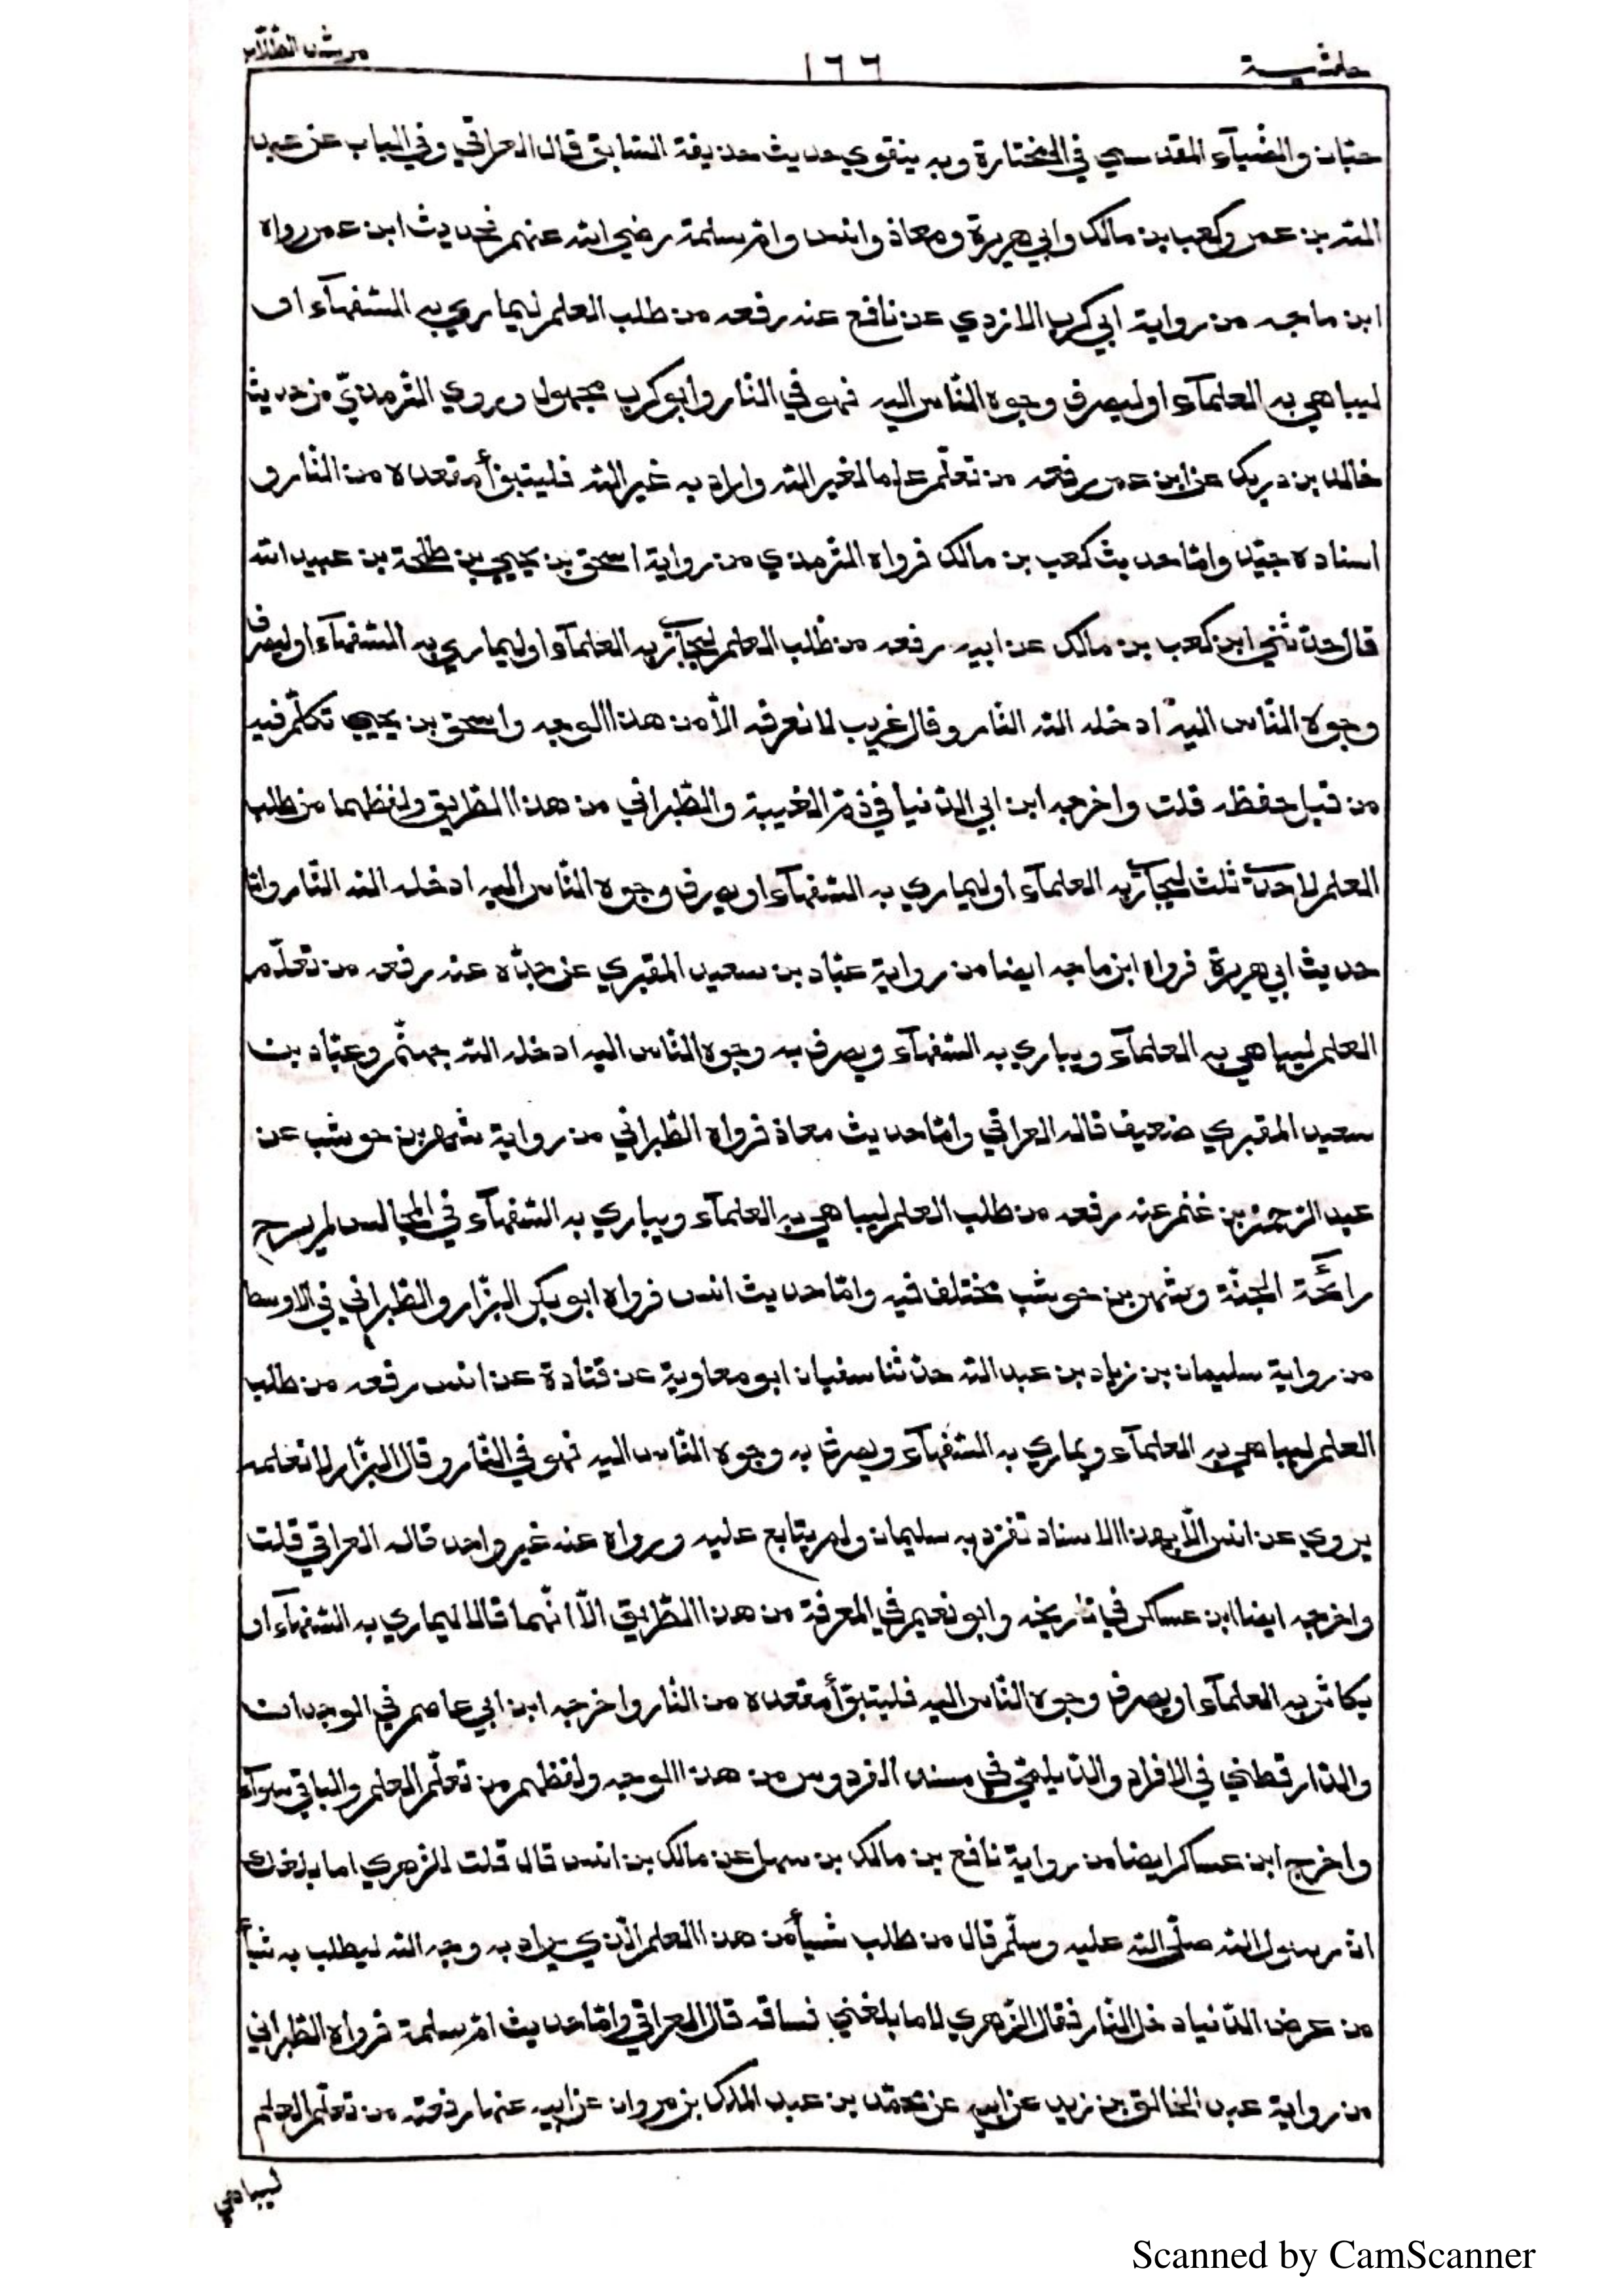 حاشية ١٦٦ مرشد الطلاب
حبّان والضّيآء المقدسي في المختارة وبه ينقوي حديث حذيفة السّابق قال العراقي وفي الباب عن عبد
الله بن عمر وكعب بن مالك وابي هريرة ومعاذ وانس وامّ سلمة رضي الله عنهم فحديث ابن عمر رواه
ابن ماجه من رواية ابي كرب الازدي عن نافع عنه رفعه من طلب العلم ليماري به السّفهآء او
ليباهي به العلمآء او ليصرف وجوه النّاس اليه فهو في النّار وابو كرب مجهول وروي التّرمذيّ من حديث
خالد بن دريك عن ابن عمر رفعه من تعلّم علما لغير الله واراد به غير الله فليتبوّأ مقعده من النّار و
اسناده جيّد وامّا حديث كعب بن مالك فرواه التّرمذي من رواية اسحق بن يحيي بن طلحة بن عبيد الله
قال حدّثني ابن كعب بن مالك عن ابيه رفعه من طلب العلم ليجآري به العلمآء او ليماري به السّفهآء او ليصرف
وجوه النّاس اليه ادخله الله النّار وقال غريب لا نعرفه الاّ من هذا الوجه واسحق بن يحيي تكلّم فيه
من قبل حفظه قلت واخرجه ابن ابي الدّنيا في ذمّ الغيبة والطّبراني من هذا الطّريق ولفظهما من طلب
العلم لاحدى ثلث ليجآري به العلمآء او ليماري به السّفهآء او يصرف وجوه النّاس اليه ادخله الله النّار وامّا
حديث ابي هريرة فرواه ابن ماجه ايضا من رواية عبّاد بن سعيد المقبري عن جدّه عنه رفعه من تعلّم
العلم ليباهي به العلمآء ويباري به السّفهآء ويصرف به وجوه النّاس اليه ادخله الله جهنّم وعبّاد بن
سعيد المقبري ضعيف قاله العراقي وامّا حديث معاذ فرواه الطّبراني من رواية شهر بن حوشب عن
عبد الرّحمن بن غنم عنه رفعه من طلب العلم ليباهي به العلمآء ويباري به السّفهآء في المجالس لم يرح
رائحة الجنّة وشهر بن حوشب مختلف فيه وامّا حديث انس فرواه ابو بكر البزّار والطّبراني في الاوسط
من رواية سليمان بن زياد بن عبد الله حدّثنا سفيان ابو معاوية عن قتادة عن انس رفعه من طلب
العلم ليباهي به العلمآء ويماري به السّفهآء ويصرف به وجوه النّاس اليه فهو في النّار وقال البزّار لا نعلمه
يروي عن انس الاّ بهذا الاسناد تفرّد به سليمان ولم يتابع عليه ورواه عنه غير واحد قاله العراقي قلت
واخرجه ايضا ابن عساكر في تاريخه وابو نعيم في المعرفة من هذا الطّريق الاّ انّهما قالا ليماري به السّفهآء او
يكاثر به العلمآء او يصرف وجوه النّاس اليه فليتبوّأ مقعده من النّار واخرجه ابن ابي عاصم في الوحدان
والدّارقطني في الافراد والدّيلمي في مسند الفردوس من هذا الوجه ولفظهم من تعلّم العلم والباقي سوآء
واخرج ابن عساكر ايضا من رواية نافع بن مالك بن سهل عن مالك بن انس قال قلت للزهري اما بلغك
انّ رسول الله صلّى الله عليه وسلّم قال من طلب شيأ من هذا العلم الّذي يراد به وجه الله ليطلب به شيأ
من عرض الدّنيا دخل النّار فقال الزّهري لا ما بلغني فساقه قال العراقي وامّا حديث امّ سلمة فرواه الطّبراني
من رواية عبد الخالق بن زيد عن ابيه عن محمّد بن عبد الملك بن مروان عن ابيه عنها رفعته من تعلّم العلم
ليباهي
Scanned by CamScanner